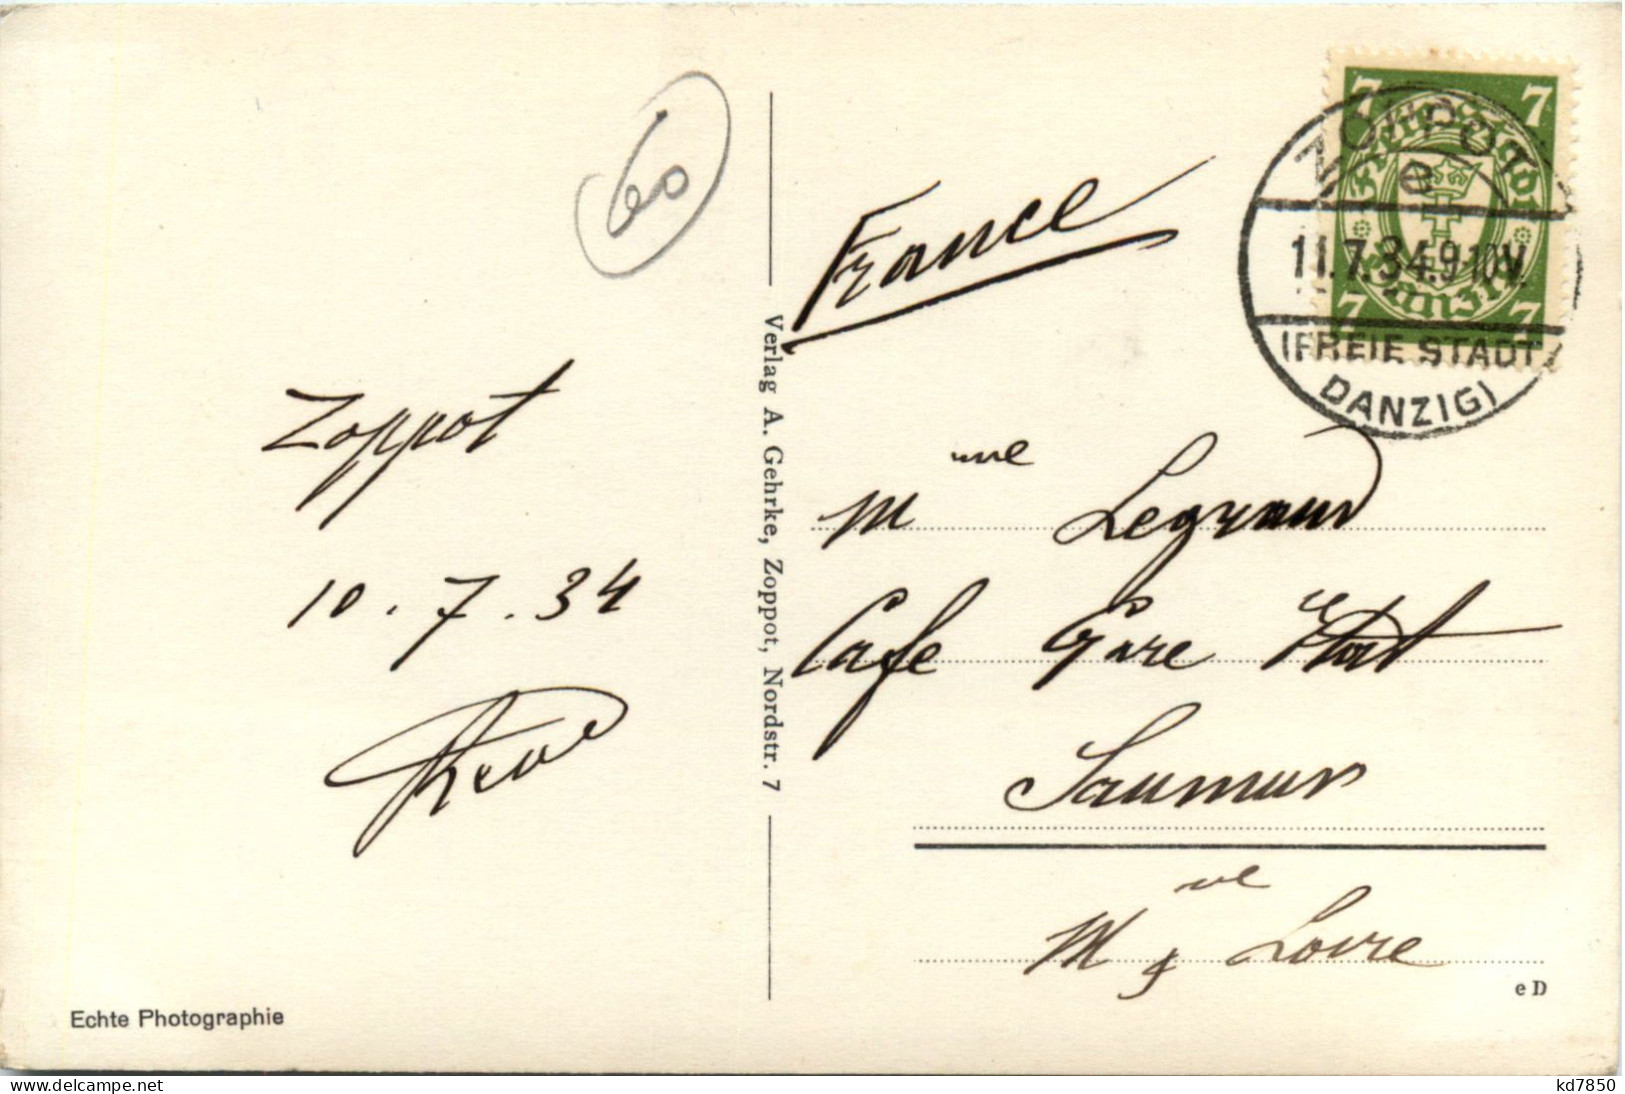 60
France
7 7
Freie Stadt
Danzig
7 7
ZOPPOT
e
11.7.34.9-10V.
(FREIE STADT
DANZIG)
Zoppot
10.7.34
Verlag A. Gehrke, Zoppot, Nordstr. 7
Mme Legrand
Cafe Gare Etat
Saumur
M & Loire
e D
Echte Photographie
www.delcampe.net
kd7850